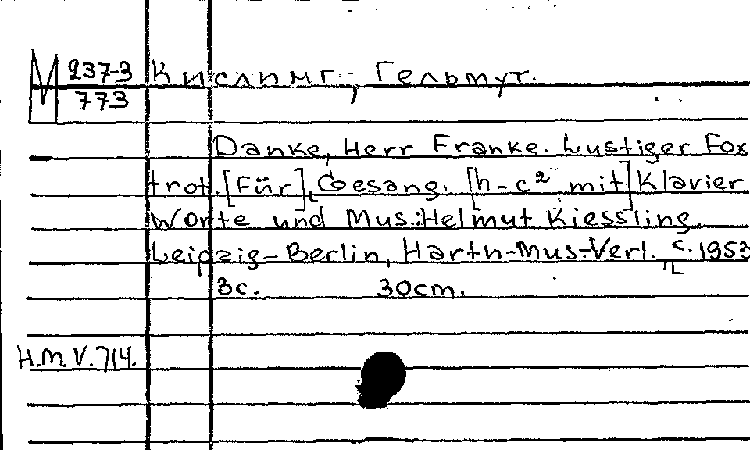 М 237-3 Кислинг, Гельмут.
773
Danke, Herr Franke. Lustiger Fox
trot. [Für] Gesang. [h-c² mit] Klavier
Worte und Mus.: Helmut Kiessling.
Leipzig-Berlin, Harth-Mus-Verl. c. 1953
3c. 30cm.
H.M.V. 714.